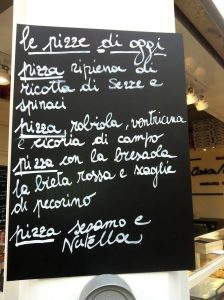 le pizze di oggi
pizza ripiena di
ricotta di Sezze e
spinaci
pizza, robiola, ventricina
e cicoria di campo
pizza con la bresaola
la bieta rossa e scaglie
di pecorino
pizza sesamo e
Nutella
Casa